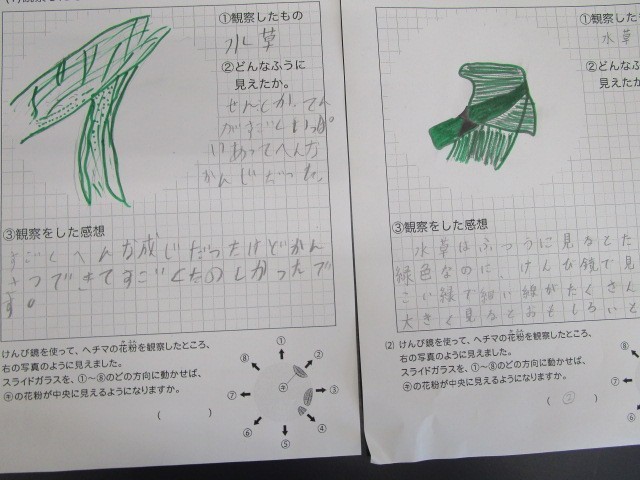 ①観察したもの
水草
②どんなふうに
見えたか。
せんとか、てん
がすごくいっぱ
いあってへんな
かんじだった。
③観察をした感想
すごくへんな感じだったけどかん
さつできてすごくたのしかったで
す。
けんび鏡を使って、ヘチマの花粉を観察したところ、
右の写真のように見えました。
スライドガラスを、①～⑧のどの方向に動かせば、
㋖の花粉が中央に見えるようになりますか。
( )
①
②
③
④
⑤
⑥
⑦
⑧
㋖
①観察した
水草
②どんな
見えた
③観察をした感想
水草はふつうに見るとた
緑色なのに、けんび鏡で見
こい緑で細い線がたくさん
大きく見るとおもしろいと
(2) けんび鏡を使って、ヘチマの花粉を観察したところ、
右の写真のように見えました。
スライドガラスを、①～⑧のどの方向に動かせば、
㋖の花粉が中央に見えるようになりますか。
( ② )
⑧
⑦
⑥